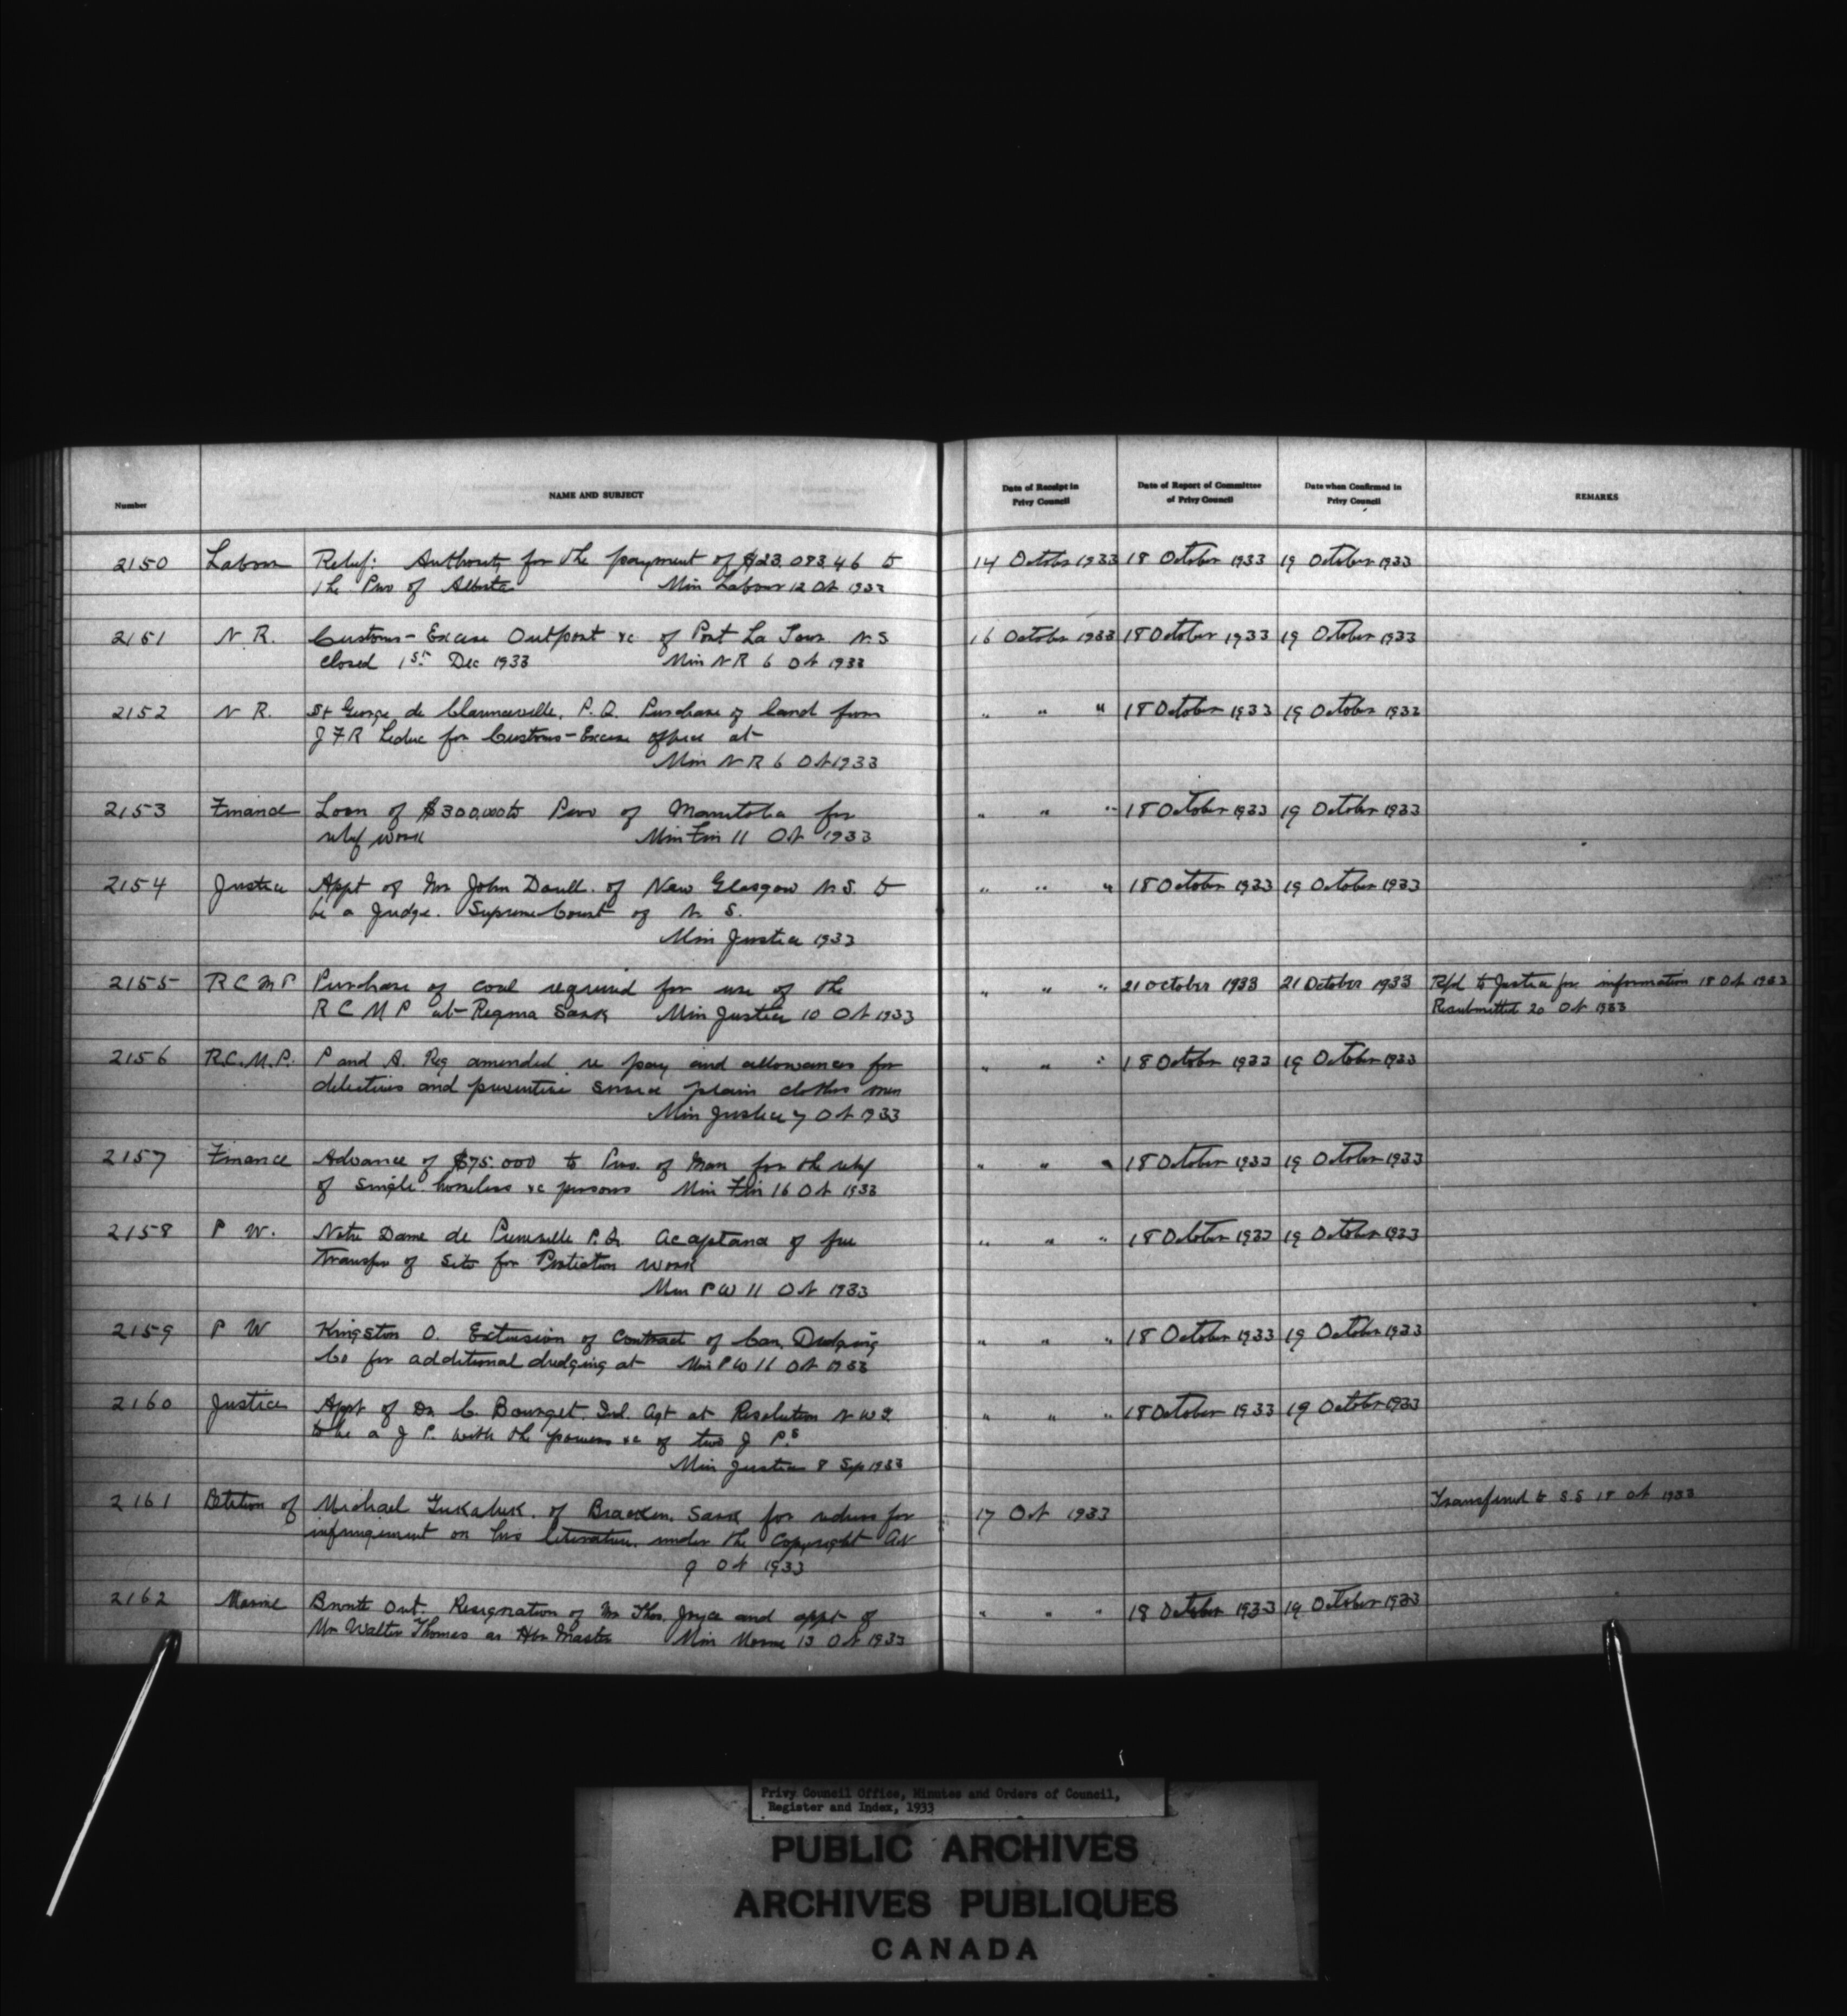 Number
NAME AND SUBJECT
Date of Receipt in
Privy Council
Date of Report of Committee
of Privy Council
Date when Confirmed in
Privy Council
REMARKS
2150 Labour Relief: Authority for the payment of $23,083,46 to 14 October 1933 18 October 1933 19 October 1933
the Prov of Alberta Min Labour 12 Oct 1933
2151 N R. Customs-Excise Outport &c of Port La Tour N.S 16 October 1933 18 October 1933 19 October 1933
closed 1st Dec 1933 Min N R 6 Oct 1933
2152 N R. St George de Clarenceville, P.Q. Purchase of land from " " " 18 October 1933 19 October 1933
J F R Leduc for Customs-Excise office at
Min N R 6 Oct 1933
2153 Finance Loan of $300,000 to Prov of Manitoba for " " " 18 October 1933 19 October 1933
relief work Min Fin 11 Oct 1933
2154 Justice Appt of Mr John Doull of New Glasgow N.S. to " " " 18 October 1933 19 October 1933
be a Judge. Supreme Court of N. S.
Min Justice 1933
2155 R C M P Purchase of coal required for use of the " " " 21 October 1933 21 October 1933 Rfd to Justice for information 18 Oct 1933
R C M P at Regina Sask Min Justice 10 Oct 1933 Resubmitted 20 Oct 1933
2156 R.C.M.P. P and A. Reg amended re pay and allowances for " " " 18 October 1933 19 October 1933
detectives and preventive service plain clothes men
Min Justice 7 Oct 1933
2157 Finance Advance of $75.000 to Prov. of Man for the relief " " " 18 October 1933 19 October 1933
of single homeless &c persons Min Fin 16 Oct 1933
2158 P W. Notre Dame de Pierreville P.Q. Acceptance of free " " " 18 October 1933 19 October 1933
transfer of site for Protection work
Min P W 11 Oct 1933
2159 P W Kingston O. Extension of contract of Can. Dredging " " " 18 October 1933 19 October 1933
Co for additional dredging at Min P W 11 Oct 1933
2160 Justice Appt of Dr C. Bourget. Ind. Agt at Resolution N W T. " " " 18 October 1933 19 October 1933
to be a J P. with the powers &c of two J P.s
Min Justice 8 Sep 1933
2161 Petition of Michael of Bracken, Sask for redress for 17 Oct 1933 Transferred to S S 18 Oct 1933
infringement on his literature, under the Copyright Act
9 Oct 1933
2162 Marine Bronte Ont. Resignation of Mr Thos. Joyce and appt of " " " 18 October 1933 19 October 1933
Mr Walter Thomas as Hbr Master Min Marine 13 Oct 1933
Privy Council Office, Minutes and Orders of Council,
Register and Index, 1933
PUBLIC ARCHIVES
ARCHIVES PUBLIQUES
CANADA